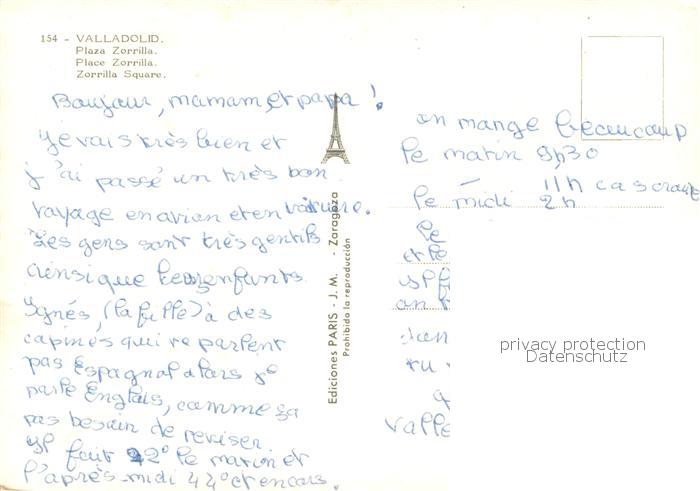 154 - VALLADOLID.
Plaza Zorrilla.
Place Zorrilla.
Zorrilla Square.
Boujour, mamam, et papa !
je vais très bien et
j'ai passé un très bon
voyage en avion et en voiture.
Les gens sont très gentils
ainsi que les enfants
Ygnés, (la fille) à des
capines qui ne parlent
pas Espagnol alors je
parle Englais, comme sa
pas besoin de reviser
yl fait 22° le matin et
l'après-midi 44° et encors.
Ediciones PARIS - J. M. - Zaragoza
Prohibida la reproducción
on mange beaucoup
le matin 9h30
11h cascroute
le midi 2h
le
et le
on
dan
ru
valle
privacy protection
Datenschutz